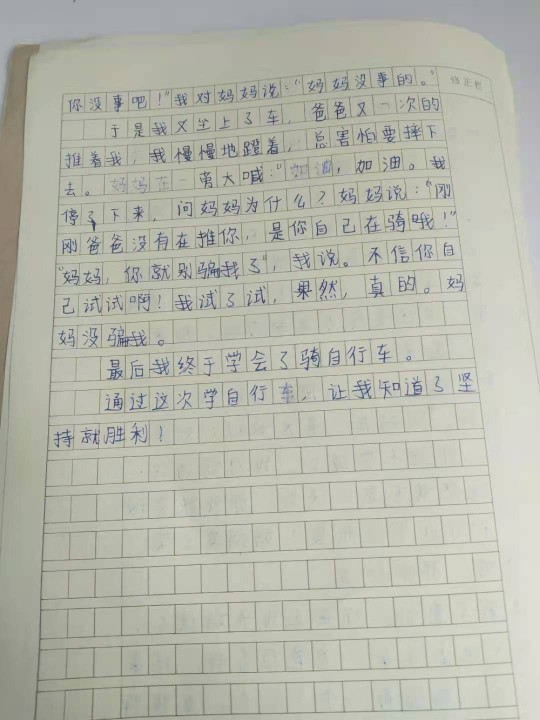 你没事吧！"我对妈妈说："妈妈没事的。"
于是我又坐上了车，爸爸又一次的
推着我，我慢慢地蹬着，总害怕要摔下
去。妈妈在一旁大喊："加油，加油。我
停了下来，问妈妈为什么？妈妈说："刚
刚爸爸没有在推你，是你自己在骑哦！"
"妈妈，你就别骗我了"，我说。不信你自
己试试啊！我试了试，果然，真的。妈
妈没骗我。
最后我终于学会了骑自行车。
通过这次学自行车，让我知道了坚
持就胜利！